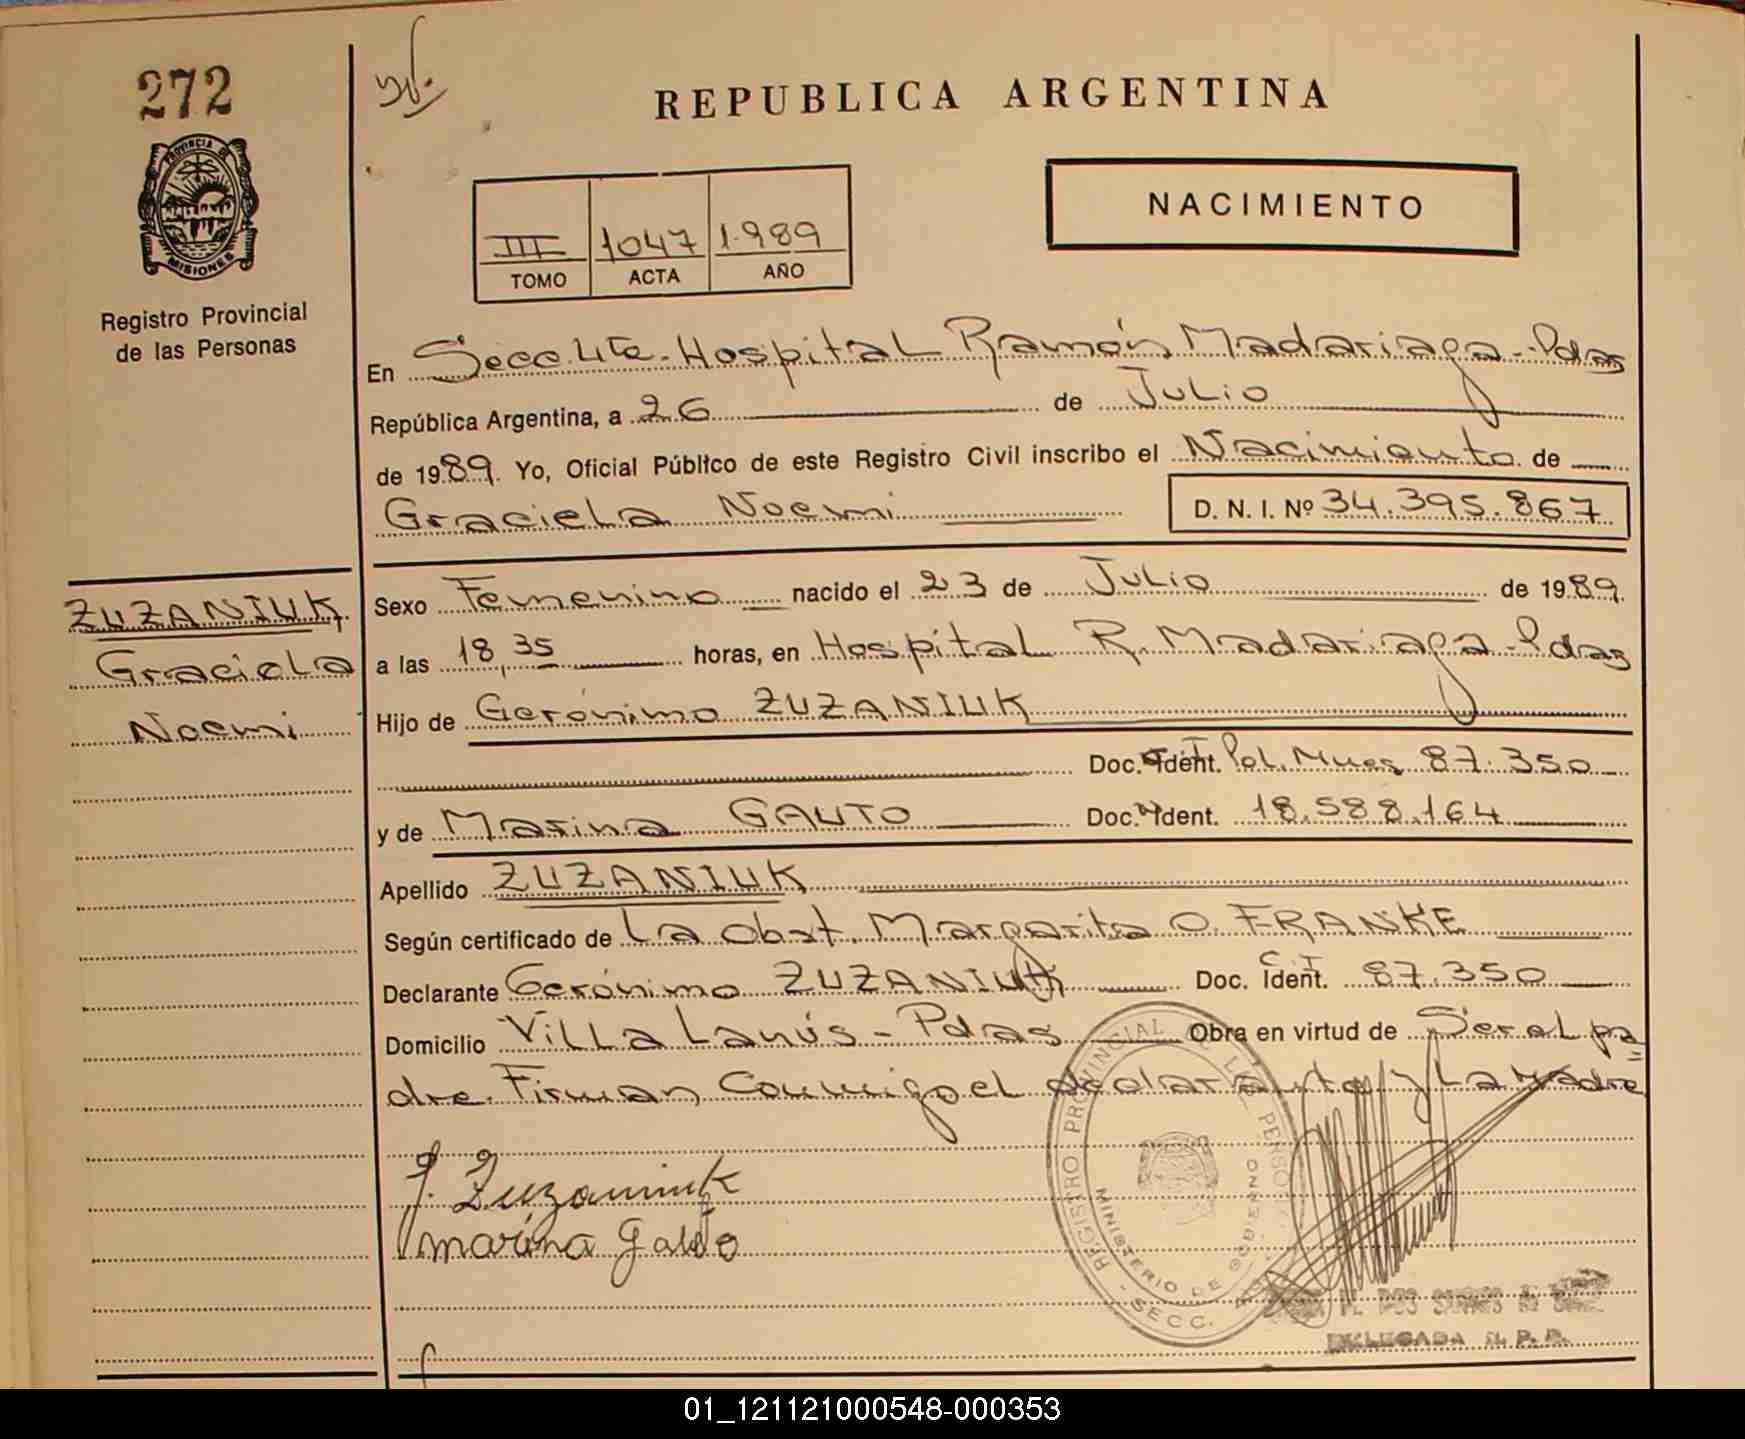 272
REPUBLICA ARGENTINA
PROVINCIA DE
MISIONES
NACIMIENTO
III 1047 1.989
TOMO ACTA AÑO
Registro Provincial
de las Personas
En Secc 4ta. Hospital Ramón Madariaga - Pdas
República Argentina, a 26 de Julio
de 1989. Yo, Oficial Público de este Registro Civil inscribo el Nacimiento de
Graciela Noemi D. N. I. Nº 34.395.867
ZUZANIUK
Graciela
Noemi
Sexo Femenino nacido el 23 de Julio de 1989.
a las 18,35 horas, en Hospital R. Madariaga - Pdas
Hijo de Gerónimo ZUZANIUK
Doc. Ident. Pol. Mnes 87.350
y de Marina GAUTO Doc. Ident. 18.588.164
Apellido ZUZANIUK
Según certificado de La Obst. Margarita O. FRANKE
Declarante Gerónimo ZUZANIUK Doc. Ident. C.I 87.350
Domicilio Villa Lanús - Pdas Obra en virtud de Ser el pa=
dre. Firman Conmigo el declarante y La madre
REGISTRO PROVINCIAL DE LAS PERSONAS
MINISTERIO DE GOBIERNO
- SECC.
J. Zuzaniuk
Marina Gauto
DOS SANTOS
DELEGADA R. P. P.
01_121121000548-000353